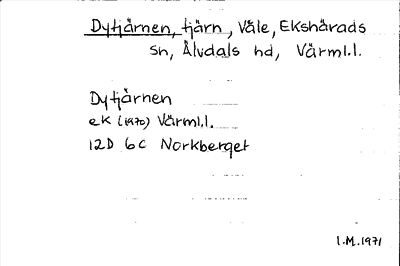 Dytjärnen, tjärn, Våle, Ekshärads
sn, Älvdals hd, Värml.l.
Dytjärnen
ek (1970) Värml.l.
12D 6c Norkberget
I.M. 1971